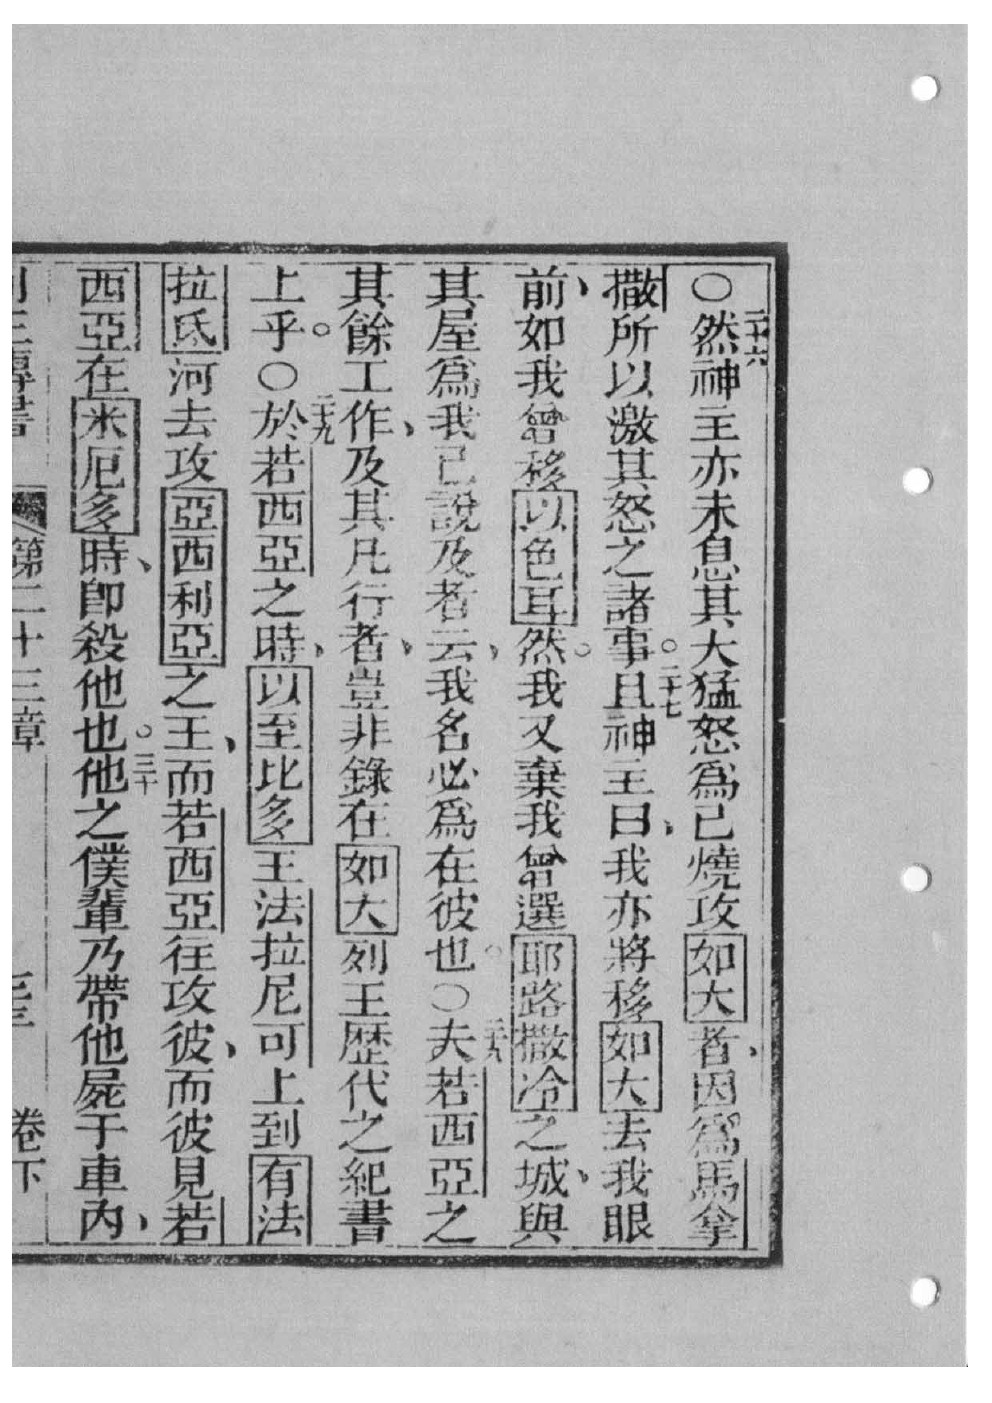 ○二十六然神主亦未息其大猛怒爲已燒攻如大者、因爲馬拿
撒所以激其怒之諸事。二十七且神主曰、我亦將移如大去我眼
前、如我曾移以色耳然。我又棄我曾選耶路撒冷之城、與
其屋爲我已說及者云、我名必爲在彼也。○二十八夫若西亞之
其餘工作、及其凡行者、豈非錄在如大列王歷代之紀書
上乎。○二十九於若西亞之時、以至比多王法拉尼可上到有法
拉氐河去攻亞西利亞之王、而若西亞往攻彼、而彼見若
西亞在米厄多時、卽殺他也。三十他之僕輩乃帶他屍于車內、
列王傳書 第二十三章 卷下